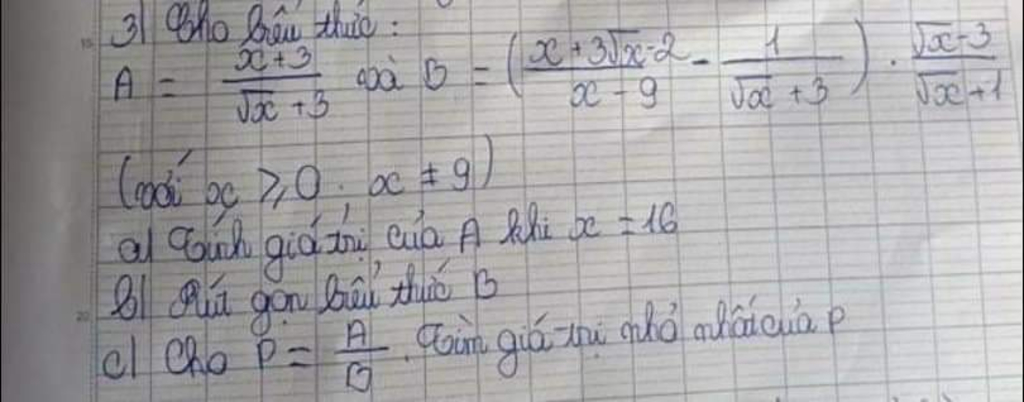 3) Cho biểu thức:
A = \frac{x+3}{\sqrt{x}+3} và B = \left(\frac{x+3\sqrt{x}-2}{x-9} - \frac{1}{\sqrt{x}+3}\right) \cdot \frac{\sqrt{x}-3}{\sqrt{x}+1}
(với x ⩾ 0. x ≠ 9)
a) Tính giá trị của A khi x = 16
b) Rút gọn biểu thức B
c) Cho P = \frac{A}{B}. Tìm giá trị nhỏ nhất của P